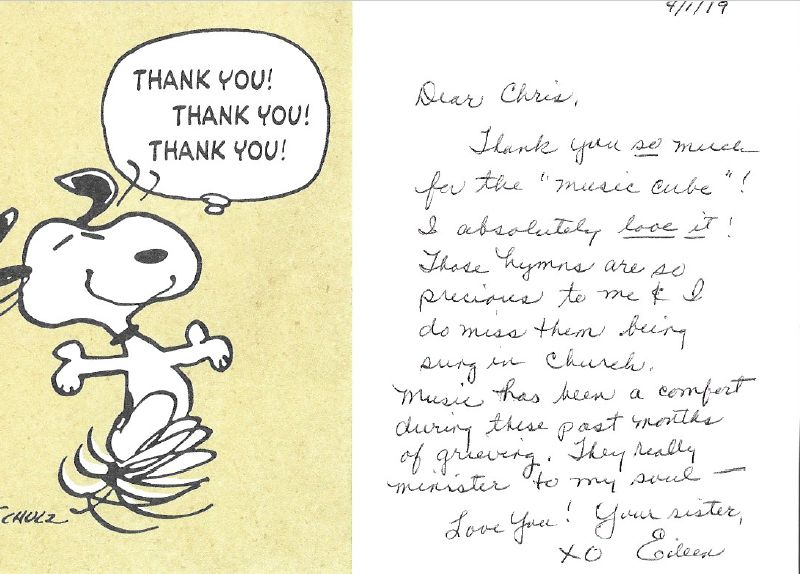 THANK YOU!
THANK YOU!
THANK YOU!
SCHULZ
4/1/19
Dear Chris,
Thank you so much
for the "music cube"!
I absolutely love it!
Those hymns are so
precious to me & I
do miss them being
sung in Church.
Music has been a comfort
during these past months
of grieving. They really
minister to my soul —
Love You! Your sister,
XO Eileen